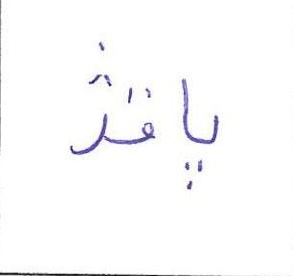 پاقژ